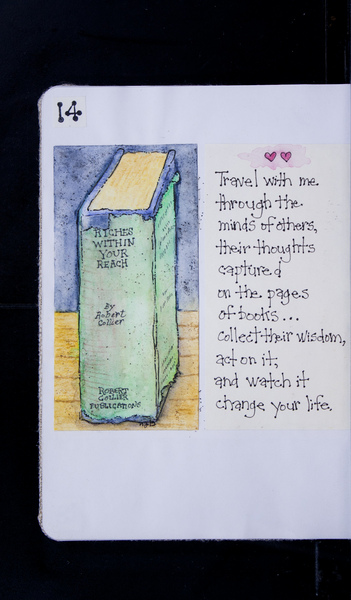 14
RICHES
WITHIN
YOUR
REACH
By
Robert
Collier
ROBERT
COLLIER
PUBLICATIONS
Travel with me
through the
minds of others,
their thoughts
captured
on the pages
of books...
collect their wisdom,
act on it,
and watch it
change your life.